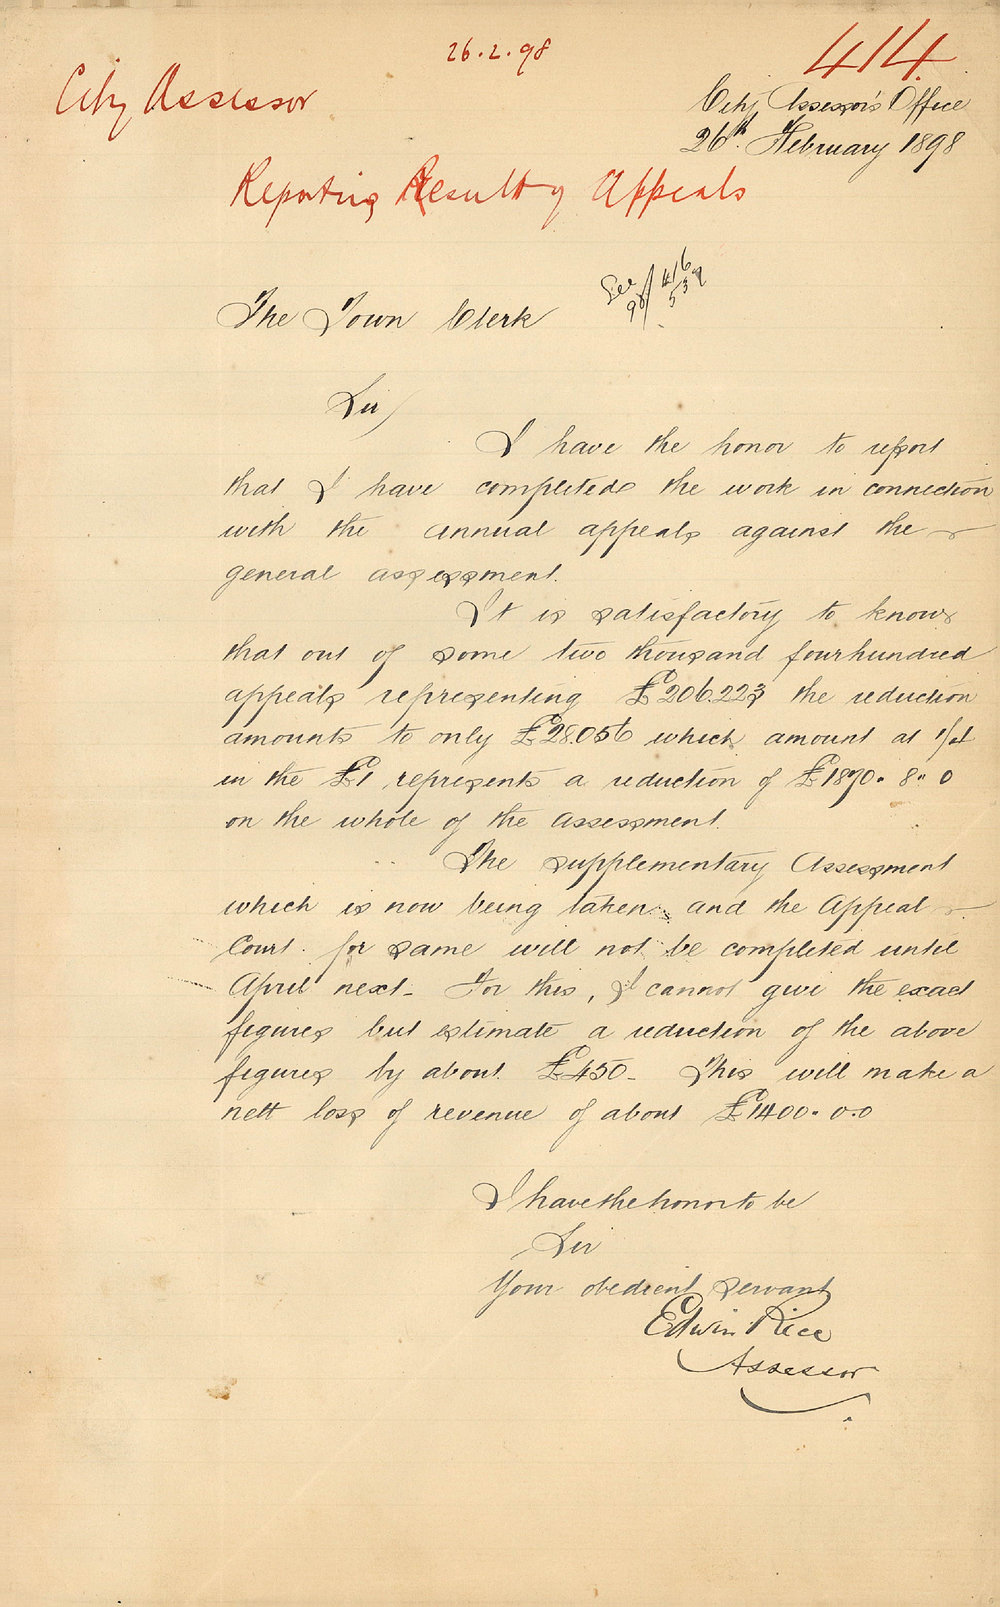 26.2.98
414.
City Assessor
City Assessor's Office
26th. February 1898
Reporting Result of Appeals
See 416
98/ 539
The Town Clerk
Sir,
I have the honor to report
that I have completed the work in connection
with the annual appeals against the
general assessment.
It is satisfactory to know
that out of some two thousand fourhundred
appeals representing £206.223 the reduction
amounts to only £28.056 which amount at 1/4
in the £1 represents a reduction of £1870. 8. 0
on the whole of the assessment.
The supplementary Assessment
which is now being taken and the Appeal
Court for same will not be completed until
April next - For this, I cannot give the exact
figures but estimate a reduction of the above
figures by about £450 - This will make a
nett loss of revenue of about £1400. 0. 0
I have the honor to be
Sir
Your obedient servant
Edwin Rice
Assessor